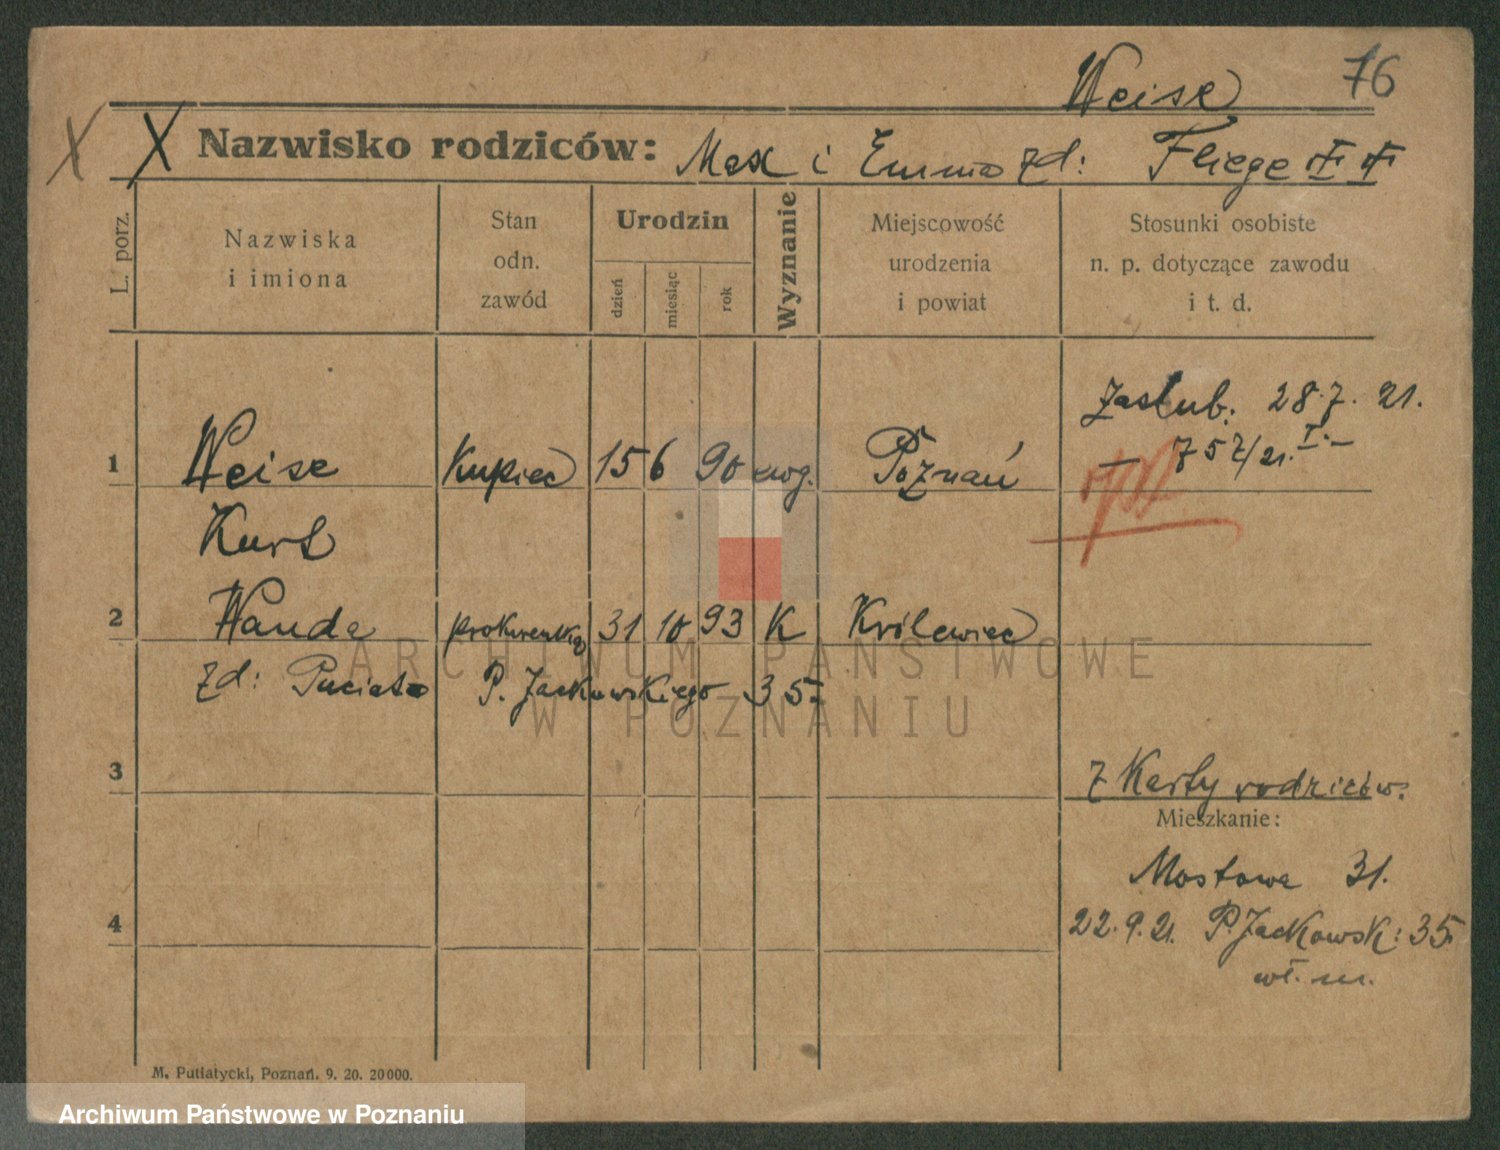 Weise 76
X X Nazwisko rodziców: Max i Emma zd: Fliege
L. porz. Nazwiska i imiona Stan odn. zawód Urodzin dzień miesiąc rok Wyznanie Miejscowość urodzenia i powiat Stosunki osobiste n. p. dotyczące zawodu i t. d.
Zaślub. 28.7.21.
1 Weise Kupiec 15 6 90 ewg. Poznań — 757/21. I. —
Kurt
2 Wanda prokurentka 31 10 93 K Królewiec
zd: Puciata P. Jackowskiego 35
3
Z Karty rodziców.
Mieszkanie:
Mostowa 31.
4 22.9.21. P. Jackowsk: 35
wł. m.
M. Putiatycki, Poznań. 9. 20. 20000.
ARCHIWUM PAŃSTWOWE
W POZNANIU
Archiwum Państwowe w Poznaniu